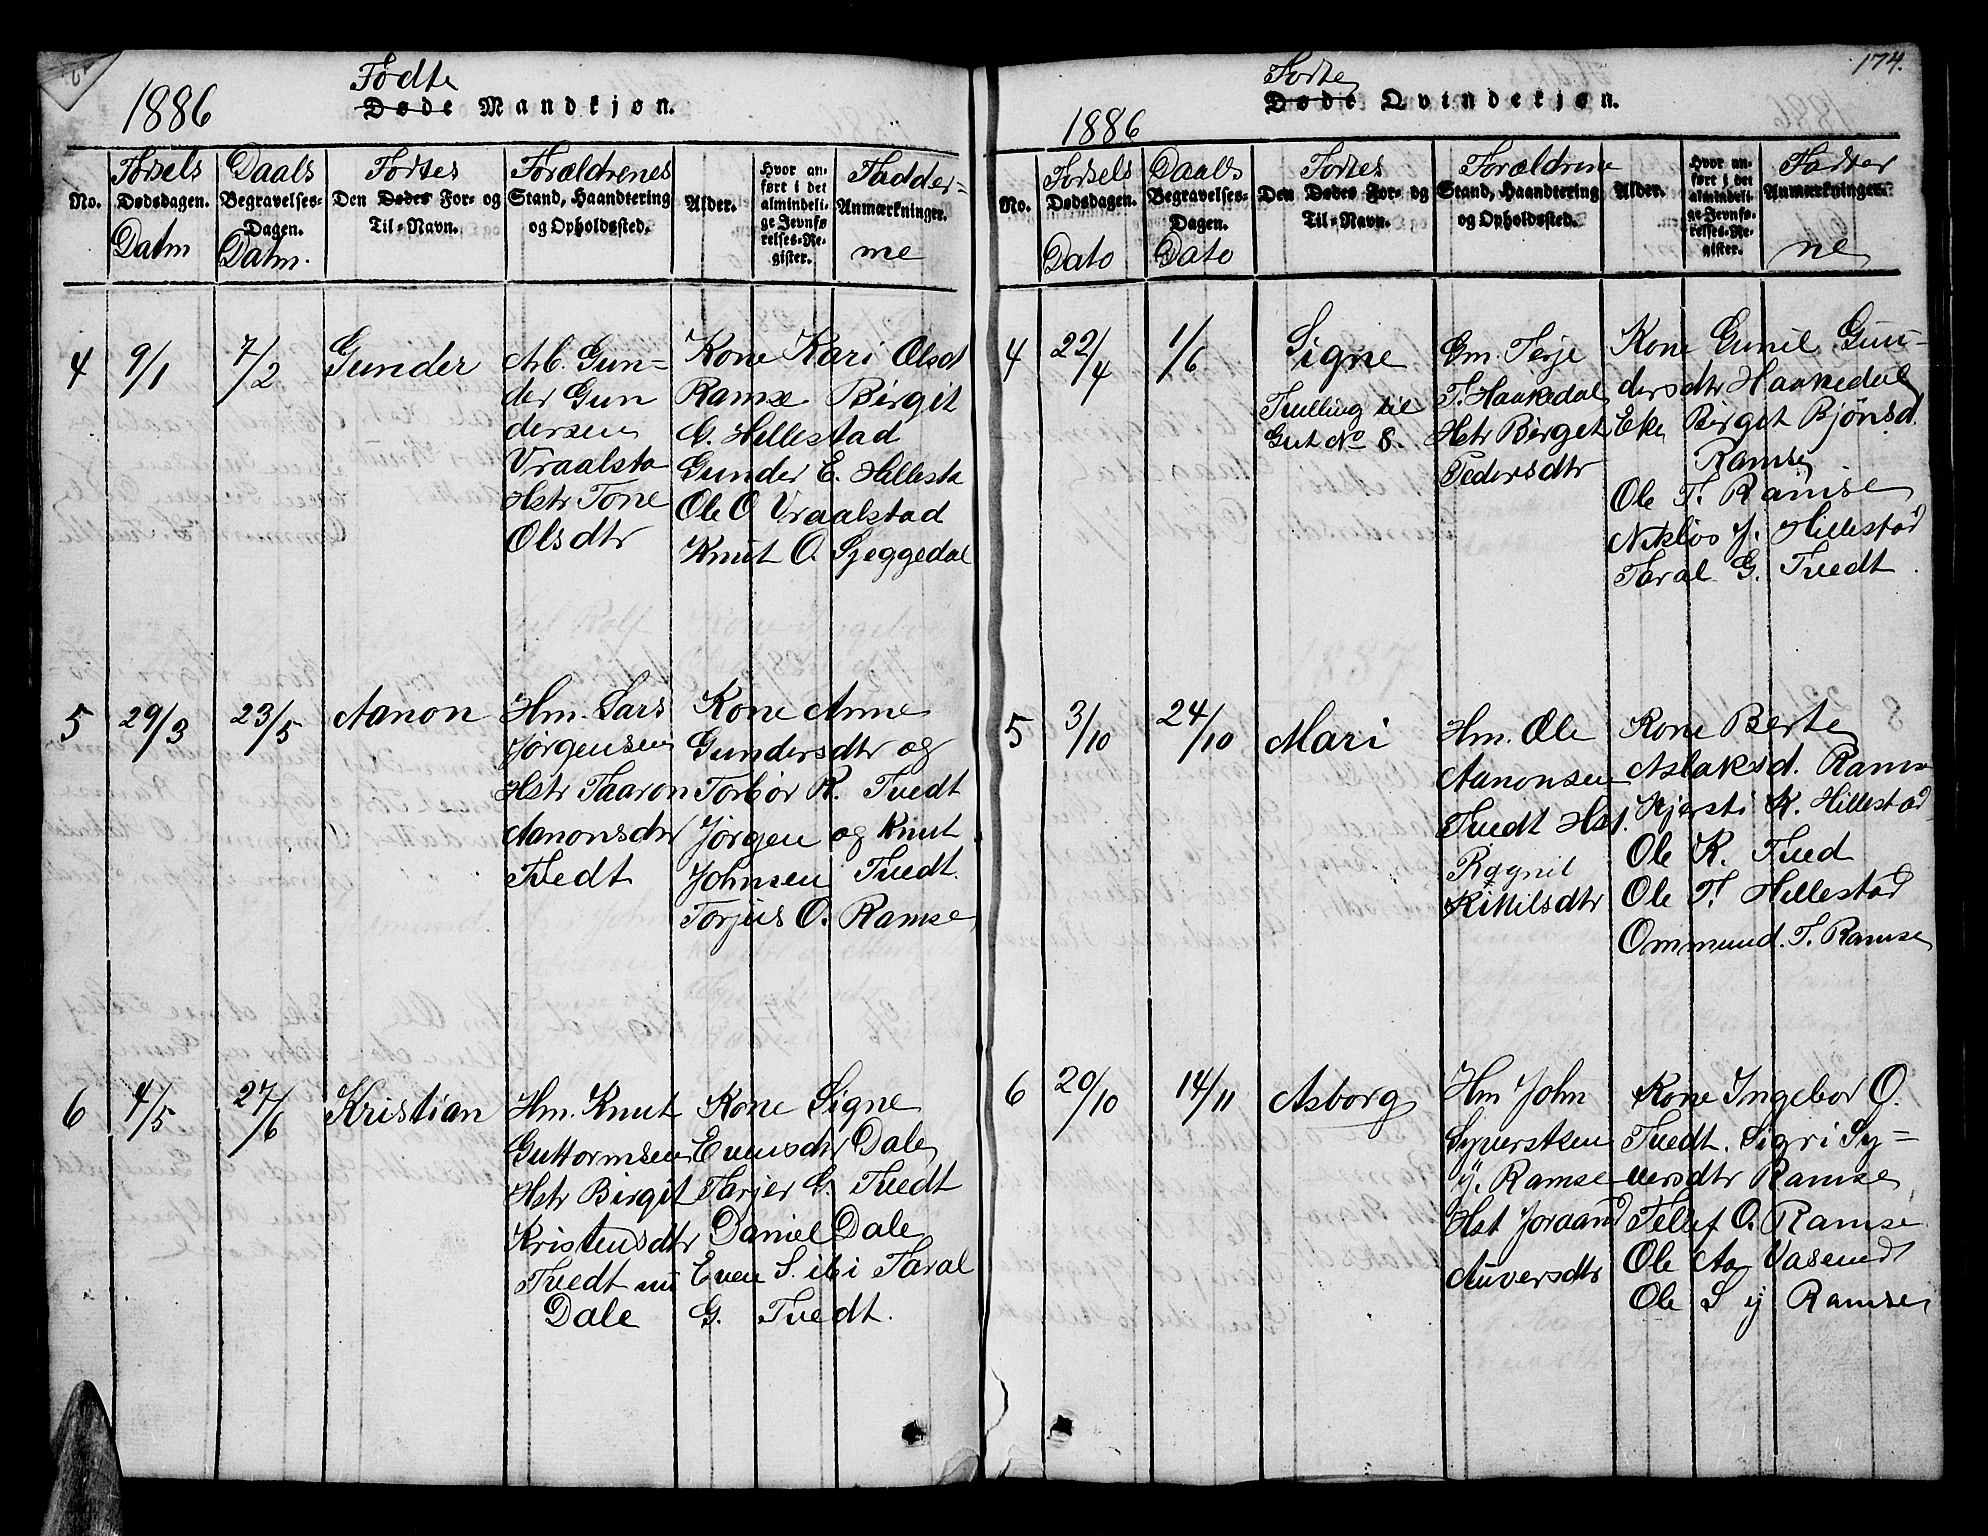 174.
1886
Fødte
Døde Mandkjøn.
No.
Føsels
Dødsdagen.
Datm
Daabs
Begravelses-
Dagen.
Datm.
Fødtes
Den Dødes For- og
Til-Navn.
Forældrenes
Stand, Haandtering
og Opholdssted.
Alder.
Hvor an-
ført i det
almindeli-
ge Jevnfø
relses-Re-
gister.
Fadder-
Anmærkninger.
me
4
9/1
7/2
Gunder
Arb. Gun-
der Gun
dersen
Vraalsta
Hstr Tone
Olsdtr
Kone Kari Olsd
Ramse Birgit
G. Hillestad
Gunder E. Hillesta
Ole O Vraalstad
Knut O. Sjeggedal
5
29/3
23/5
Aanon
Hm. Lars
Jørgensen
Hstr Taaron
Aanonsdtr
Tvedt
Kone Anne
Gundersdtr og
Torbør K. Tvedt
Jørgen og Knut
Johnsen Tvedt.
Torjus O. Ramse
6
4/5
27/6
Kristian
Hm. Knut
Guttormsen
Hstr Birgit
Kristensdtr
Tvedt nu
Dale
Kone Signe
Evensdtr Dale
Tarjer G. Tvedt
Daniel Dale
Even S. ibi Taral
G. Tvedt.
1886
Fødte
Døde Qvindekjøn.
No.
Fødsels
Dødsdagen.
Dato
Daabs
Begravelses-
Dagen.
Dato
Fødtes
Den Dødes For- og
Til-Navn.
Forældrene
Stand, Haandtering
og Opholdssted.
Alder.
Hvor an-
ført i det
almindeli-
ge Jevnfø-
relses-Re-
gister.
Fadder
Anmærkninger.
ne
4
22/4
1/6
Signe
Tvilling til
Gut No 8.
Gm Terje
T. Haakedal
Hstr Birget
Pedersdtr
Kone Gunil Gun-
dersdtr Haakedal
Eke Birget Bjönsd.
Ramse
Ole T. Ramse
Niklös J. Hillestad
Taral G. Tvedt
5
3/10
24/10
Mari
Hm. Ole
Aanonsen
Tvedt Hst.
Ragnil
Kittilsdtr
Kone Berte
Aslaksd. Rams
Kjersti K. Hillestad
Ole K. Tved
Ole T. Hillestad
Ommund. T. Ramse
6
20/10
14/11
Asborg
Hm John
Syversten
y. Ramse
Hst Joraand
Auversdtr
Kone Ingebor O.
Tvedt. Sigri Sy-
versdtr Ramse
Tellef O. Ramse
Ole Aa Vasend
Ole S y Ramse